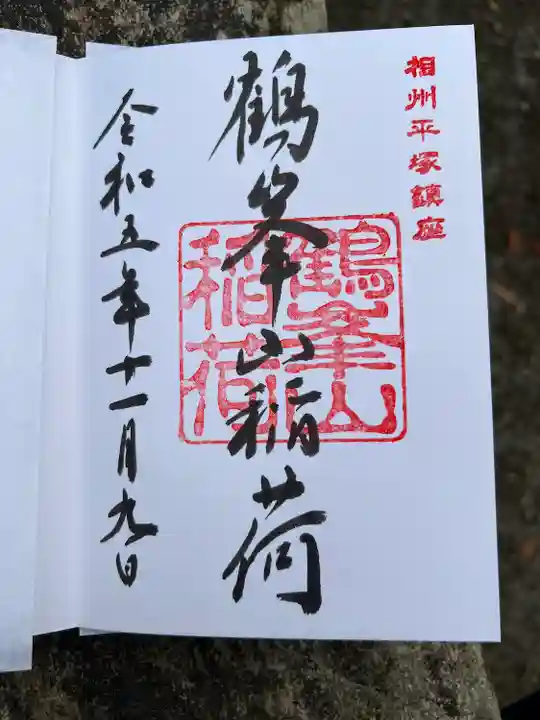 相州平塚鎮座
鶴峯山稲荷
鶴峯山
稲荷
令和五年十一月九日